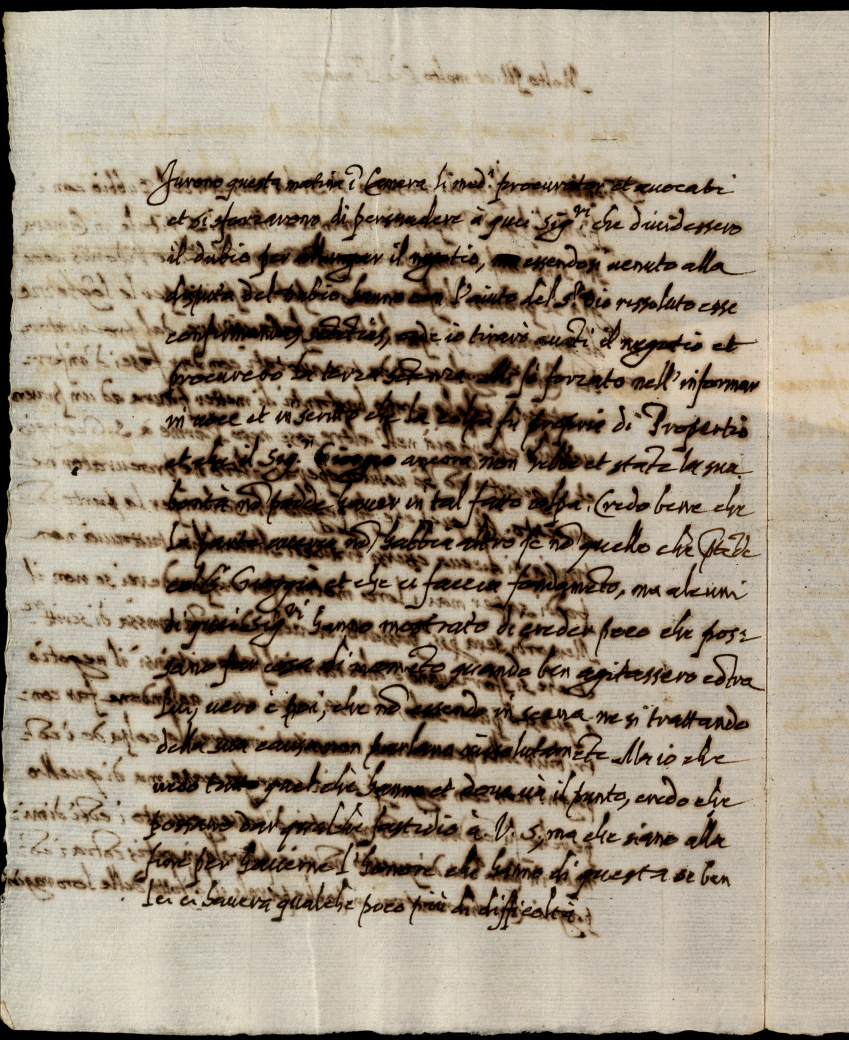 Furono questa matina ĩ Camera li med.i procuratori et avocati
et si sforzarono di persuadere à quei sig.ri che dividessero
il dubio per allungar il negotio, ma essendosi venuto alla
disputa del dubio hanno con l'aiuto del s.r Dio ressoluto esse
confirmandas sntẽtias, onde io tirarò avãti il negotio et
procurerò la terza setenza. Mi sõ forzato nell'informar
in voce et in scritto che la colpa fù proprio di Propertio
et che il Sig.r Giorgio ancora non hebbe et state la sua
bontà nõ potè haver in tal fatto colpa. Credo bene che
la parte aversa nõ habbia altro se nõ quello che
col S. Giorgio et che ci faccia fondamẽto, ma alcuni
di quei Sig.ri hanno mostrato di creder poco che poss=
sano far cosa di momẽto quando ben agitassero cõtra
lui; vero è poi, che nõ essendo in scena ne si trattando
della sua causa non parlano rissolutamẽte. Ma io che
vedo tutto quel che hanno et dove và il punto, credo che
possano dar qualche fastidio à V. S, ma che siano alla
fine per haverne l'honore che hanno di questa se ben
lei ci haverà qualche poco più di difficoltà.